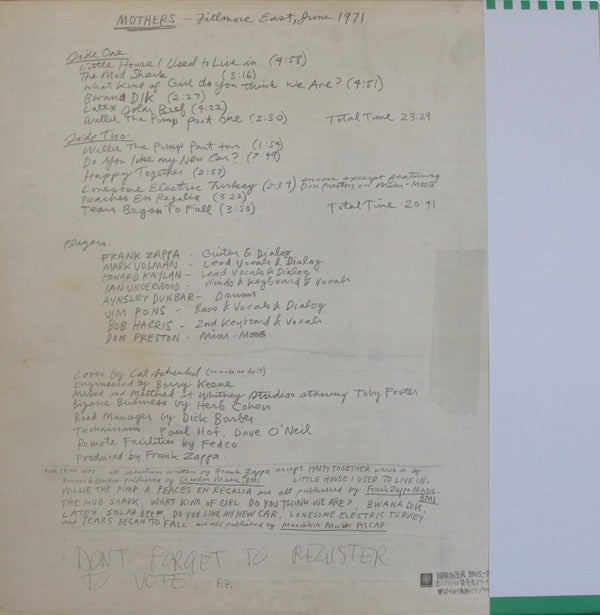 MOTHERS - Fillmore East, June 1971
Side One:
Little House I Used to Live in (4:58)
The Mud Shark (5:16)
What Kind of Girl do you think we Are? (4:51)
Bwana DIK (2:27)
Latex Solar Beef (4:22)
Willie The Pimp part one (2:50) Total Time 23:29
Side Two:
Willie The Pimp Part two (1:54)
Do You like my New Car? (7 49)
Happy Together (2:57)
Lonesome Electric Turkey (2:34) encore excerpt featuring Don Preston on Mini-MOOG
Peaches En Regalia (3:22)
Tears Began To Fall (3:50) Total Time 20 41
Players:
FRANK ZAPPA - Guitar & Dialog
MARK VOLMAN - Lead Vocals & Dialog
HOWARD KAYLAN - Lead Vocals & Dialog
IAN UNDERWOOD - Winds & Keyboard & Vocals
AYNSLEY DUNBAR - Drums
JIM PONS - Bass & Vocals & Dialog
BOB HARRIS - 2nd Keyboard & Vocals
DON PRESTON - Mini-MOOG
Cover by Cal Schenkel
Engineered by Barry Keene
Mixed and Mastered at Whitney Studios starring Toby Foster
Bizarre Business by Herb Cohen
Road Manager by Dick Barber
Technicians Paul Hof, Dave O'Neil
Remote Facilities by Fedco
Produced by Frank Zappa.
all selections written by Frank Zappa except HAPPY TOGETHER which is by
published by Chardon Music, BMI LITTLE HOUSE I USED TO LIVE IN,
WILLIE THE PIMP & PEACES EN REGALIA are all published by Frank Zappa Music, BMI
THE MUD SHARK, WHAT KIND OF GIRL DO YOU THINK WE ARE?, BWANA DIK,
LATEX SOLAR BEEF, DO YOU LIKE MY NEW CAR, LONESOME ELECTRIC TURKEY
and TEARS BEGAN TO FALL are all published by Munchkin Music ASCAP
DON'T FORGET TO REGISTER
TO VOTE F.Z.
WARNER BROS.